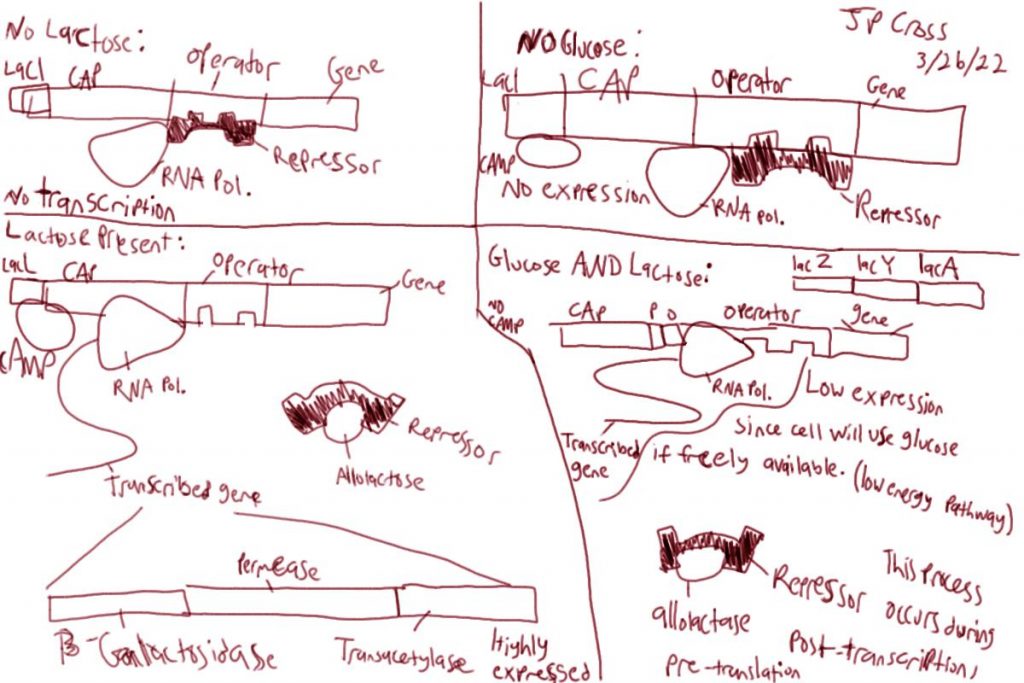 No Lactose:
LacI
CAP
operator
Gene
Repressor
RNA Pol.
No transcription
JP Cross
3/26/22
NO Glucose:
LacI
CAP
operator
Gene
cAMP
No expression
RNA pol.
Repressor
Lactose Present:
LacL
CAP
operator
Gene
cAMP
RNA Pol.
Repressor
Allolactose
Transcribed gene
Permease
B-Galactosidase
Transacetylase
Highly
expressed
Glucose AND Lactose:
lacZ
lacY
lacA
NO
CAMP
CAP
P
O
operator
gene
RNA Pol.
Low expression
since cell will use glucose
if freely available. (low energy pathway)
Transcribed
gene
Repressor
allolactase
This process
occurs during
post-transcription,
pre-translation